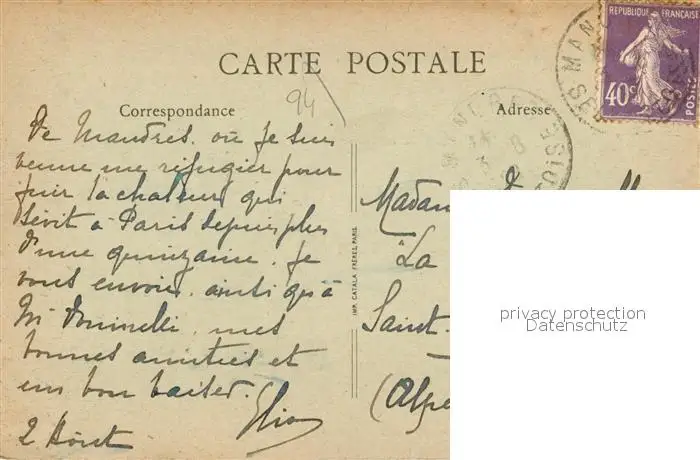 CARTE POSTALE
Correspondance
94
De Mandres où je suis
venue me réfugier pour
fuir la chaleur qui
sévit à Paris depuis plus
d'une quinzaine. Je
vous envoie, ainsi qu'à
mes
bonnes amitiés et
un bon baiser.
2 Août
IMP. CATALA FRÈRES, PARIS
Adresse
Madam
"La
Saint-
(Alpe
REPUBLIQUE FRANÇAISE
40c
POSTES
MAN
OISE
privacy protection
Datenschutz